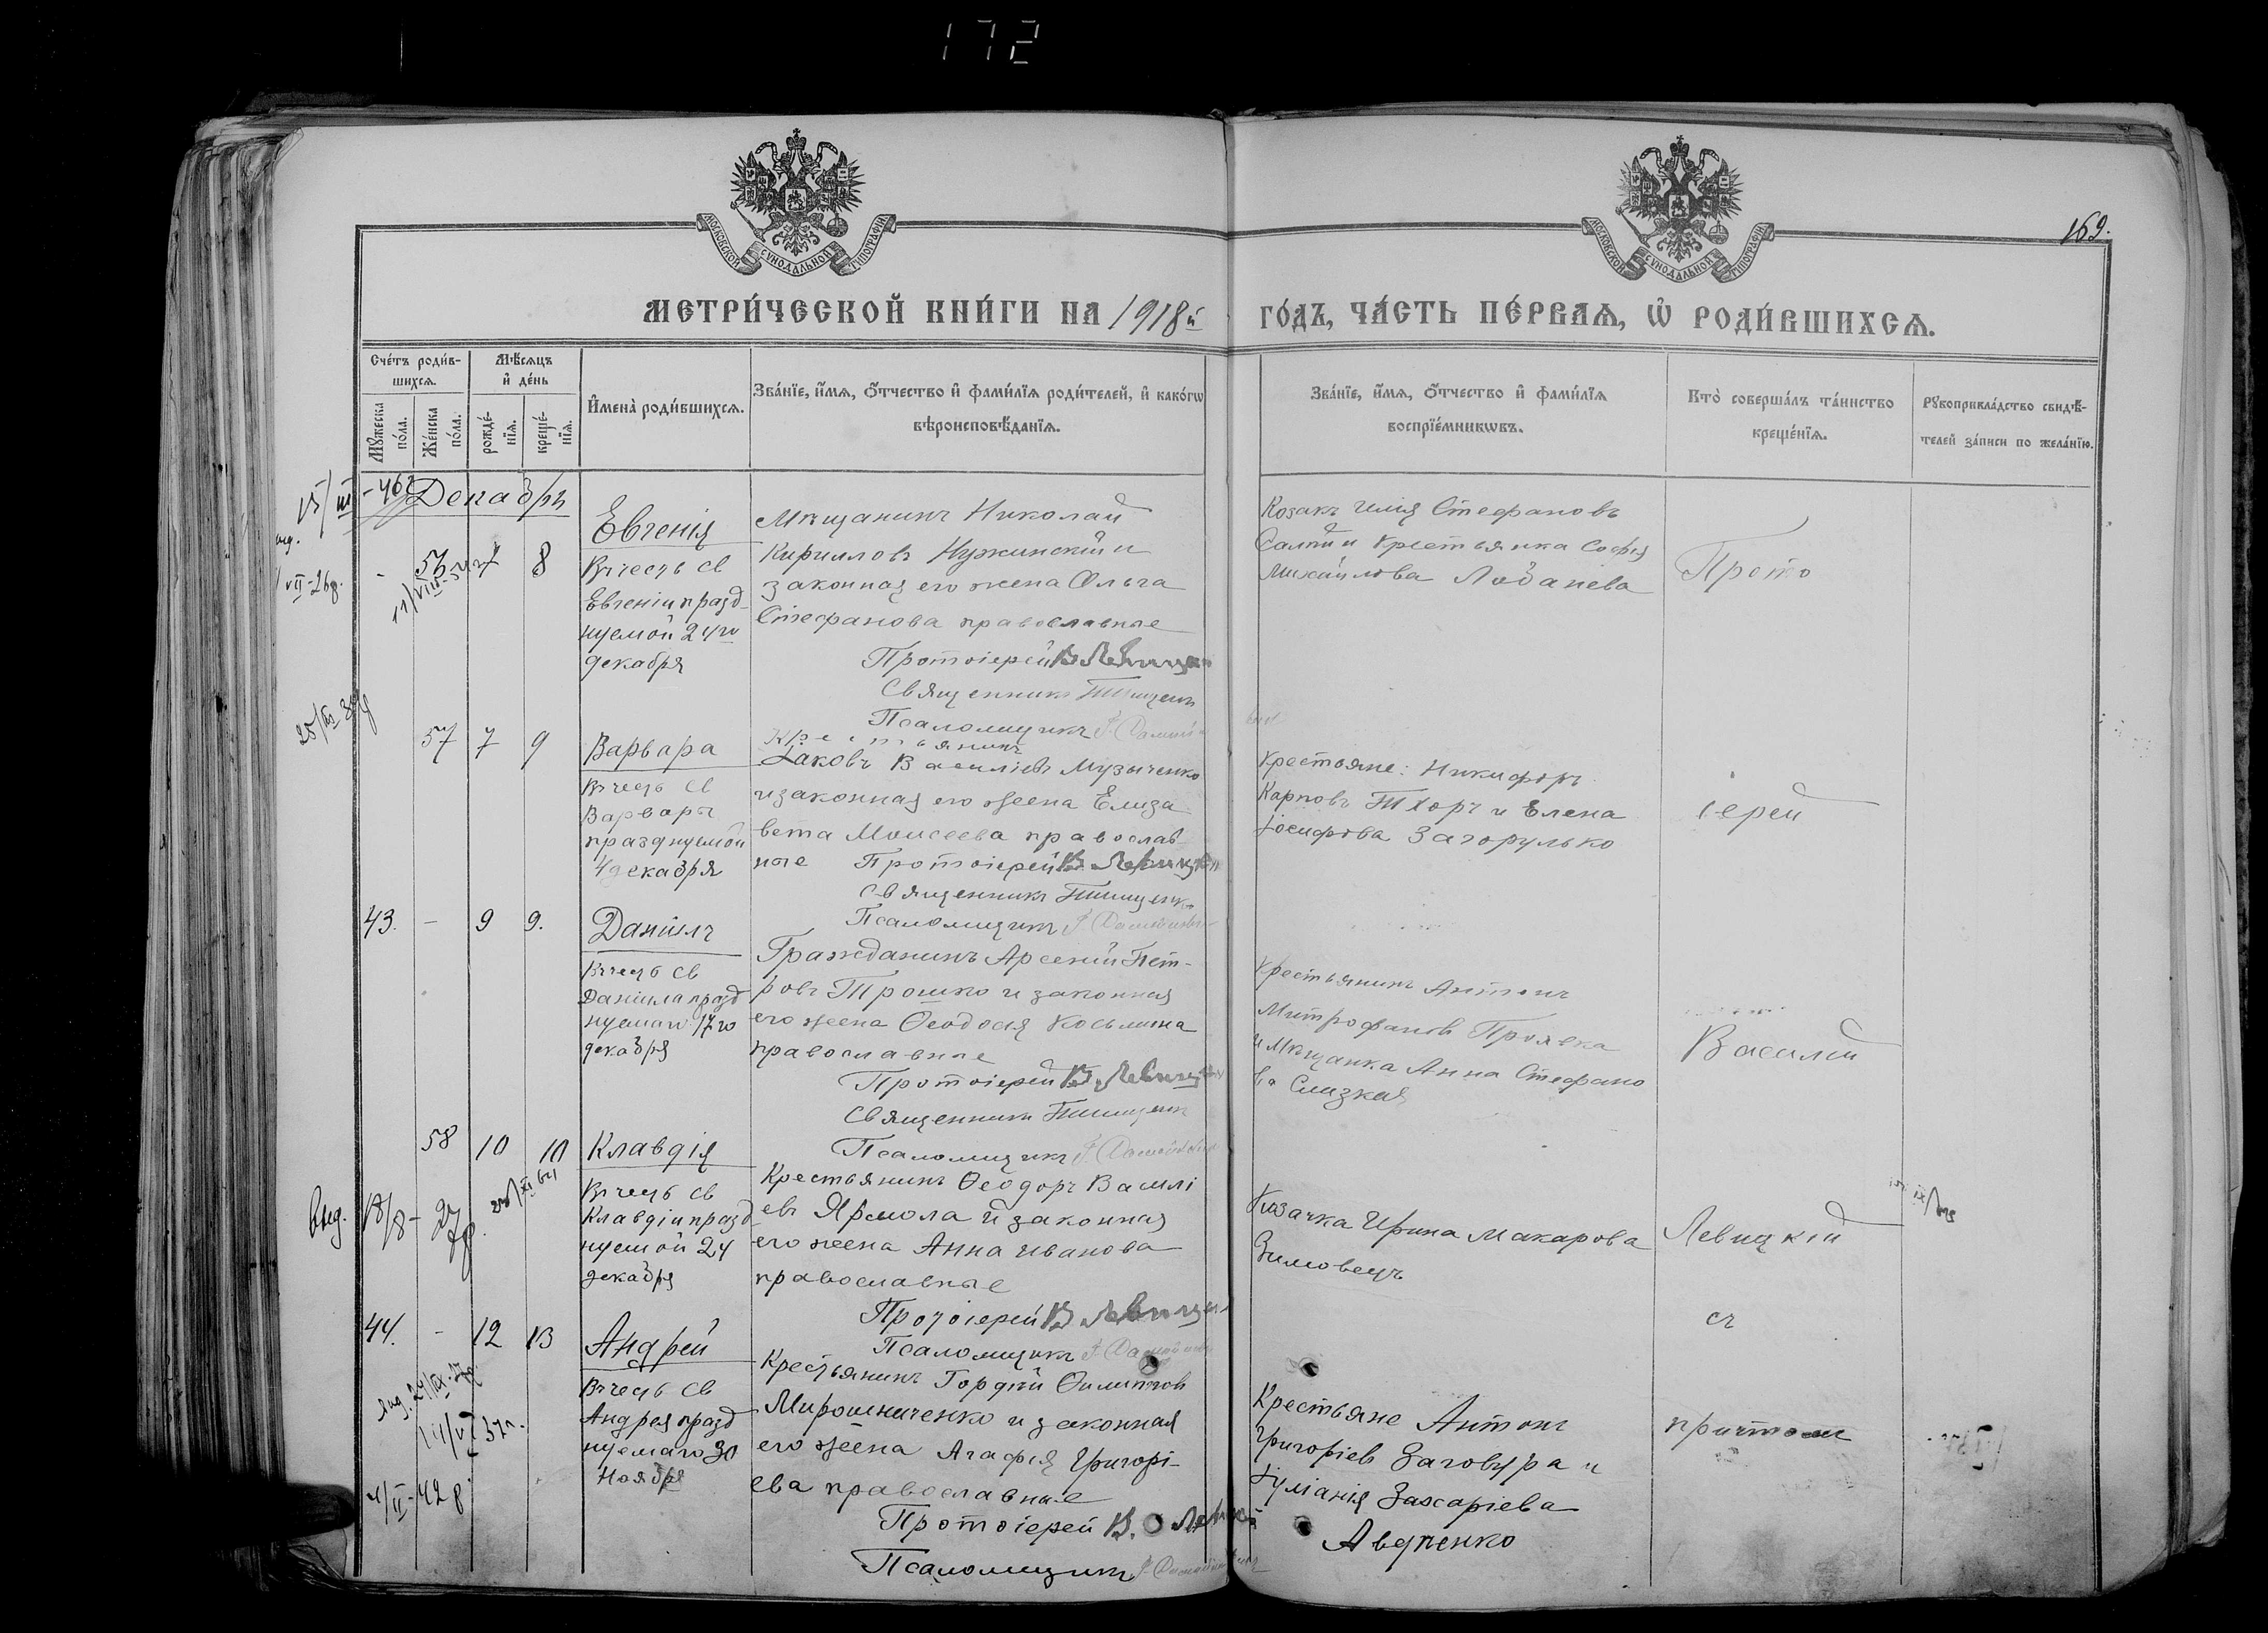 172
МОСКОВСКОЙ СѴНОДАЛЬНОЙ ТИПОГРАФІИ
МОСКОВСКОЙ СѴНОДАЛЬНОЙ ТИПОГРАФІИ
169.
МЕТРИ́ЧЕСКОЙ КНИ́ГИ НА 1918й
ГО́ДЪ, ЧА́СТЬ ПЕ́РВАѦ, Ѽ РОДИ́ВШИХСѦ.
Сче́тъ роди́в-
шихсѧ.
Мꙋжеска по́ла.
Же́нска по́ла.
Мѣ́сѧцъ
и҆ де́нь
рожде́-
нїѧ.
креще́-
нїѧ.
И҆мена̀ роди́вшихсѧ.
Зва́нїе, и҆́мѧ, ѻ҆́тчество и҆ фами́лїѧ роди́телей, и҆ како́гѡ
вѣроисповѣ́данїѧ.
Зва́нїе, и҆́мѧ, ѻ҆́тчество и҆ фами́лїѧ
воспрїе́мникѡвъ.
Кто̀ соверша́лъ та́инство
креще́нїѧ.
Рꙋкоприкла́дство свидѣ́-
телей за́писи по жела́нїю.
Декабрь
56 7 8
Евгенія
Въ честь св
Евгеніи празд
нуемой 24го
декабря
Мѣщанинъ Николай
Кирилловъ Нужинскій и
законная его жена Ольга
Стефанова православные
Протоіерей В Левицкій
Священникъ
Псаломщикъ
Козакъ Илія Стефановъ
и Крестьянка Софія
Михайлова
Прото
57 7 9
Варвара
Въ честь св
Варвары
празднуемой
4 декабря
Крестьянинъ
Іаковъ Василіевъ Музыченко
и законная его жена Елиза
вета Моисеева православ
ные Протоіерей В Левицкій
Священникъ
Псаломщикъ
Крестьяне: Никифоръ
Карповъ Тхоръ и Елена
Іосифова Загорулько
іерей
43. - 9 9.
Даніилъ
Въ честь св
Даніила празд
нуемаго 17го
декабря
Гражданинъ Арсеній Пет-
ровъ Трошко и законная
его жена Ѳеодосія Косьмина
православные
Протоіерей В. Левицкій
Священникъ
Псаломщикъ
Крестьянинъ Антонъ
Митрофановъ Проявка
и Мѣщанка Анна Стефано
ва Слизкая
Василій
58 10 10
Клавдія
Въ честь св
Клавдіи празд
нуемой 24
декабря
Крестьянинъ Ѳеодоръ Василі
евъ Ярмола и законная
его жена Анна Иванова
православные
Протоіерей В Левицкій
Псаломщикъ
Козачка Ирина Макарова
Зимовецъ
Левицкій
съ
44. - 12 13
Андрей
Въ честь св
Андрея празд
нуемаго 30
Ноября
Крестьянинъ Гордій Филиповъ
Мирошниченко и законная
его жена Агафія Григорі-
ева православные
Протоіерей В. Левицкій
Псаломщикъ
Крестьяне Антонъ
Григоріевъ Заговура и
Іуліанія Захаріева
Авдѣенко
причтомъ